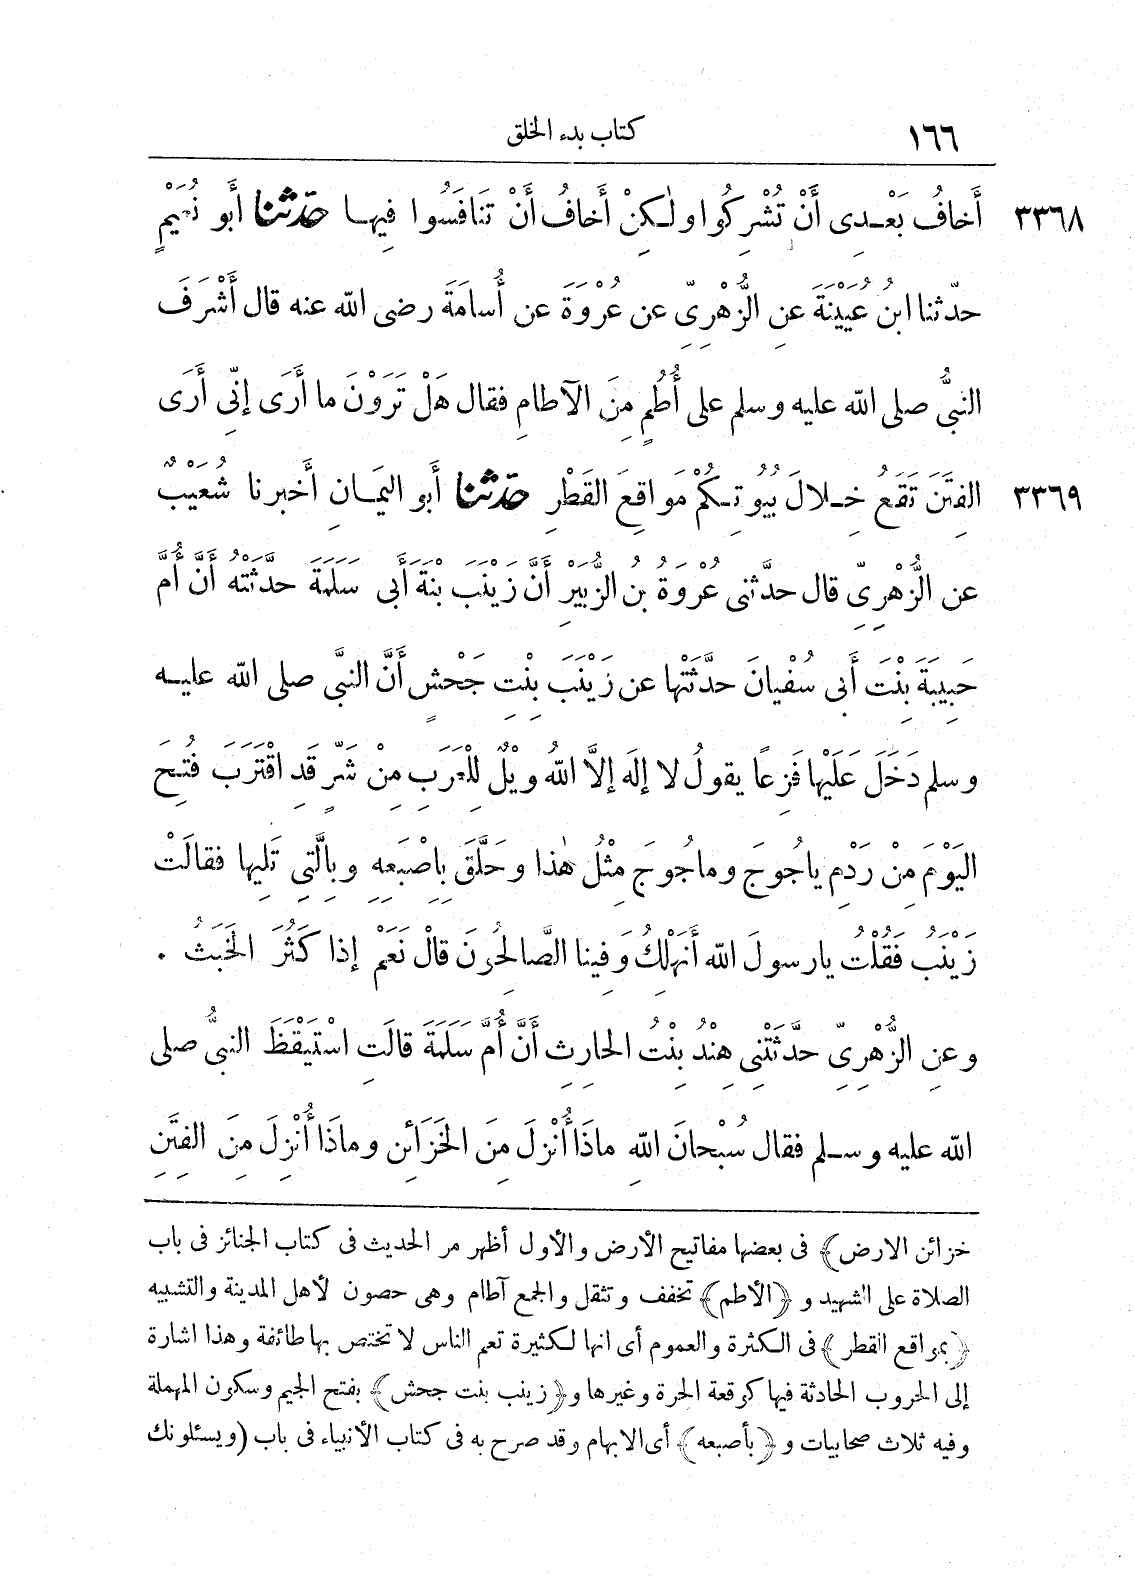 ١٦٦ كتاب بدء الخلق
٣٣٦٨ أَخافُ بَعْدِى أَنْ تُشْرِكُوا ولٰكِنْ أَخافُ أَنْ تَنَافَسُوا فِيها حدّثنا أَبو نُعَيْمٍ
حدّثنا ابنُ عُيَيْنَةَ عنِ الزُّهْرِىِّ عن عُرْوَةَ عن أُسامَةَ رضى الله عنه قال أَشْرَفَ
النبىُّ صلى الله عليه وسلم على أُطُمٍ مِنَ الآطامِ فقال هَلْ تَرَوْنَ ما أَرَى إنِّى أَرَى
٣٣٦٩ الفِتَنَ تَقَعُ خِلالَ بُيُوتِكُمْ مَواقِعَ القَطْرِ حدّثنا أَبو اليَمانِ أَخبرنا شُعَيْبٌ
عن الزُّهْرِىِّ قال حدّثنى عُرْوَةُ بنُ الزُّبَيْرِ أَنَّ زَيْنَبَ بْنَةَ أَبى سَلَمَةَ حدَّثَتْهُ أَنَّ أُمَّ
حَبِيبَةَ بِنْتَ أَبى سُفْيانَ حدَّثَتْها عن زَيْنَبَ بِنْتِ جَحْشٍ أَنَّ النبىَّ صلى الله عليه
وسلم دَخَلَ عَلَيْها فَزِعًا يقولُ لا إلَه إلاَّ اللهُ ويْلٌ لِلْعَرَبِ مِنْ شَرٍّ قَدِ اقْتَرَبَ فُتِحَ
اليَوْمَ مِنْ رَدْمِ ياجُوجَ وماجُوجَ مِثْلُ هٰذا وحَلَّقَ بِاِصْبَعِهِ وبالَّتِى تَلِيها فقالَتْ
زَيْنَبُ فَقُلْتُ يارسولَ الله أَنَهْلِكُ وَفِينا الصَّالِحُونَ قالْ نَعَمْ إذا كَثُرَ الخَبَثُ .
وعنِ الزُّهْرِىِّ حدَّثَتْنِى هِنْدُ بِنْتُ الحارِثِ أَنَّ أُمَّ سَلَمَةَ قالَتِ اسْتَيْقَظَ النبىُّ صلى
الله عليه وسلم فقال سُبْحانَ اللهِ ماذَا أُنْزِلَ مِنَ الخَزَائِنِ وماذَا أُنْزِلَ مِنَ الفِتَنِ
خزائن الارض﴾ فى بعضها مفاتيح الأرض والأول أظهر مر الحديث فى كتاب الجنائز فى باب
الصلاة على الشهيد و ﴿الأطم﴾ تخفف وتثقل والجمع آطام وهى حصون لأهل المدينة والتشبيه
﴿بمواقع القطر﴾ فى الكثرة والعموم أى انها لكثيرة تعم الناس لا تختص بها طائفة وهذا اشارة
إلى الحروب الحادثة فيها كوقعة الحرة وغيرها و﴿زينب بنت جحش﴾ بفتح الجيم وسكون المهملة
وفيه ثلاث صحابيات و ﴿بأصبعه﴾ أى الابهام وقد صرح به فى كتاب الأنبياء فى باب (ويسئلونك